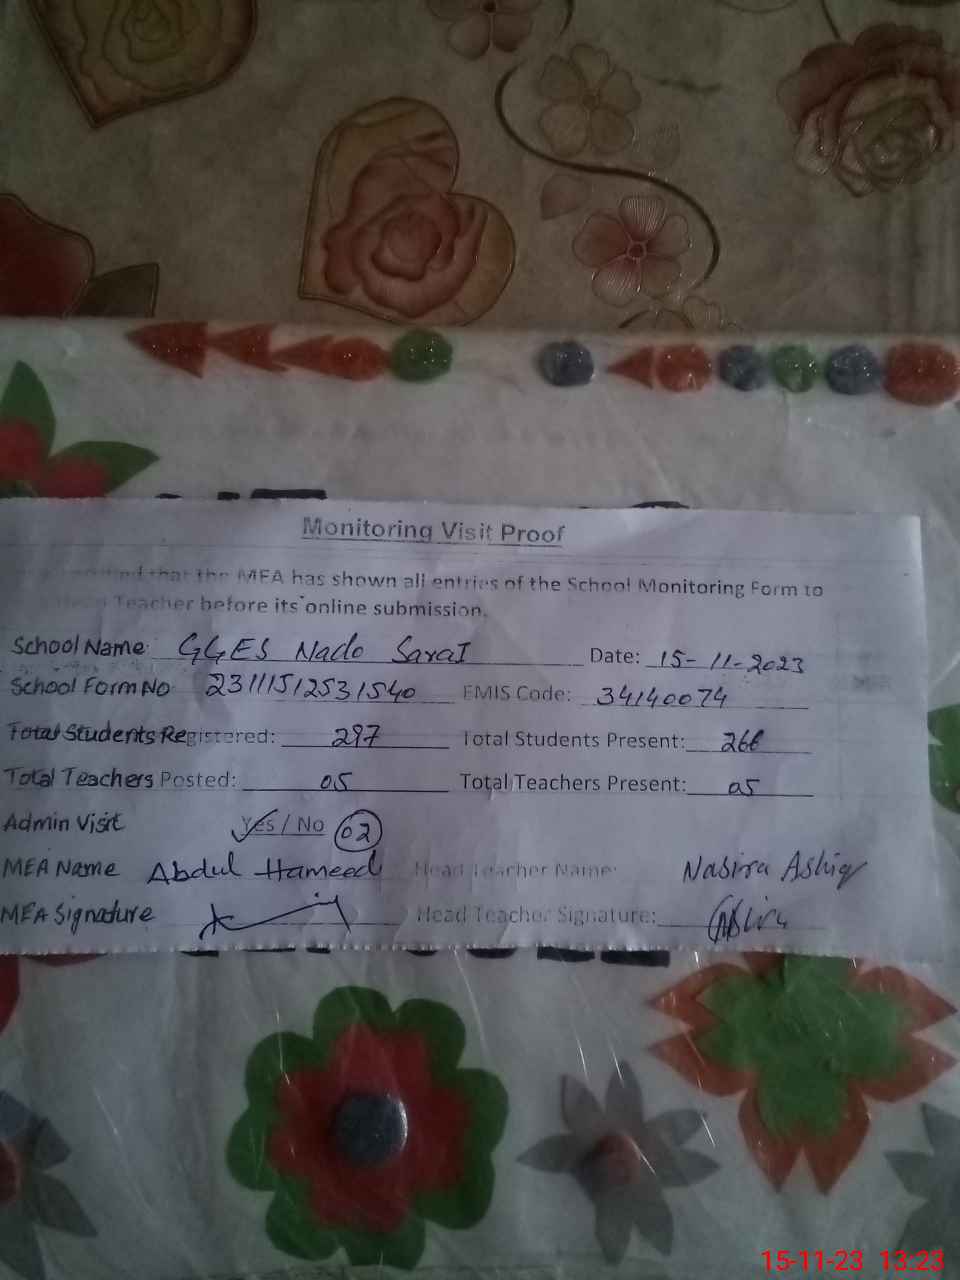 Monitoring Visit Proof
that the MEA has shown all entries of the School Monitoring Form to
Teacher before its online submission.
School Name: GGES Nado SaraI Date: 15-11-2023
School Form No 23111512531540 EMIS Code: 34140074
Total Students Registered: 297 Total Students Present: 266
Total Teachers Posted: 05 Total Teachers Present: 05
Admin Visit Yes / No 02
MEA Name Abdul Hameed Head Teacher Name: Nasira Ashiq
MEA Signature Head Teacher Signature:
15-11-23 13:23